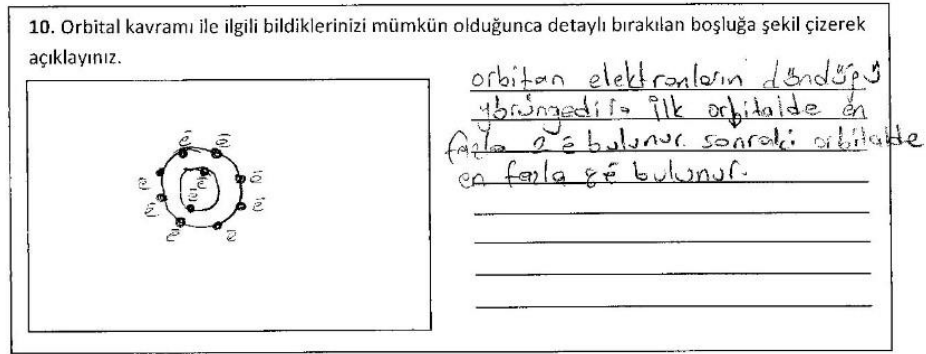 10. Orbital kavramı ile ilgili bildiklerinizi mümkün olduğunca detaylı bırakılan boşluğa şekil çizerek
açıklayınız.
orbitan elektronların döndüğü
yörüngedir. İlk orbitalde en
fazla 2 ē bulunur. sonraki orbitalde
en fazla 8 ē bulunur.
ē ē
ē ē ē
ē ē ē
ē ē